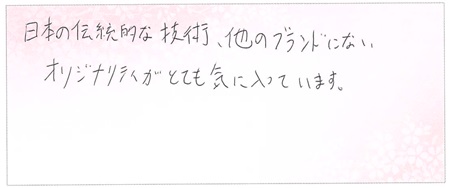 日本の伝統的な技術、他のブランドにない
オリジナリティがとても気に入っています。